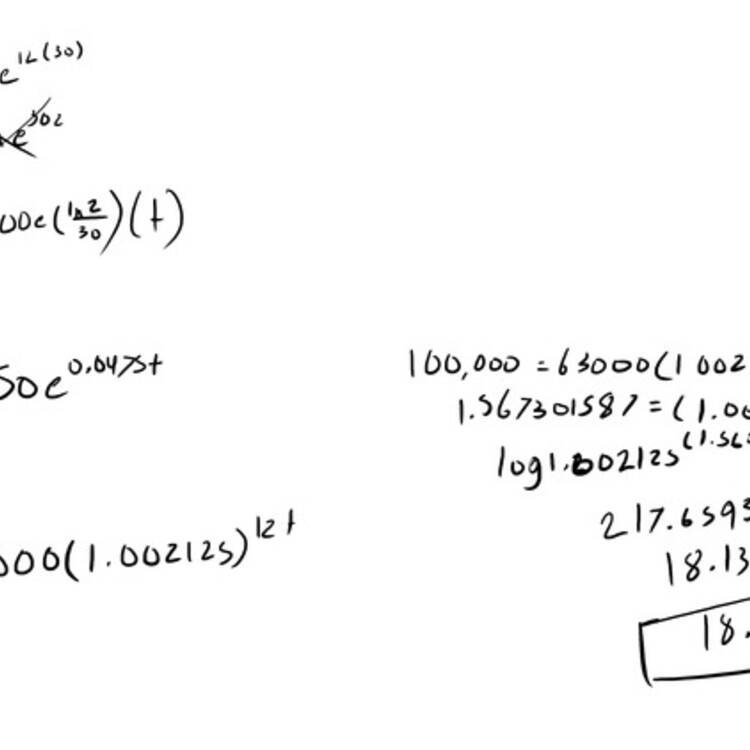 e^12(30)
e^302
00e(ln2/30)(t)
50e^0.0475t
000(1.002125)^12t
100,000 = 63000(1 002
1.567301587 = (1.00
log1.002125^(1.56
217.6593
18.13
18.